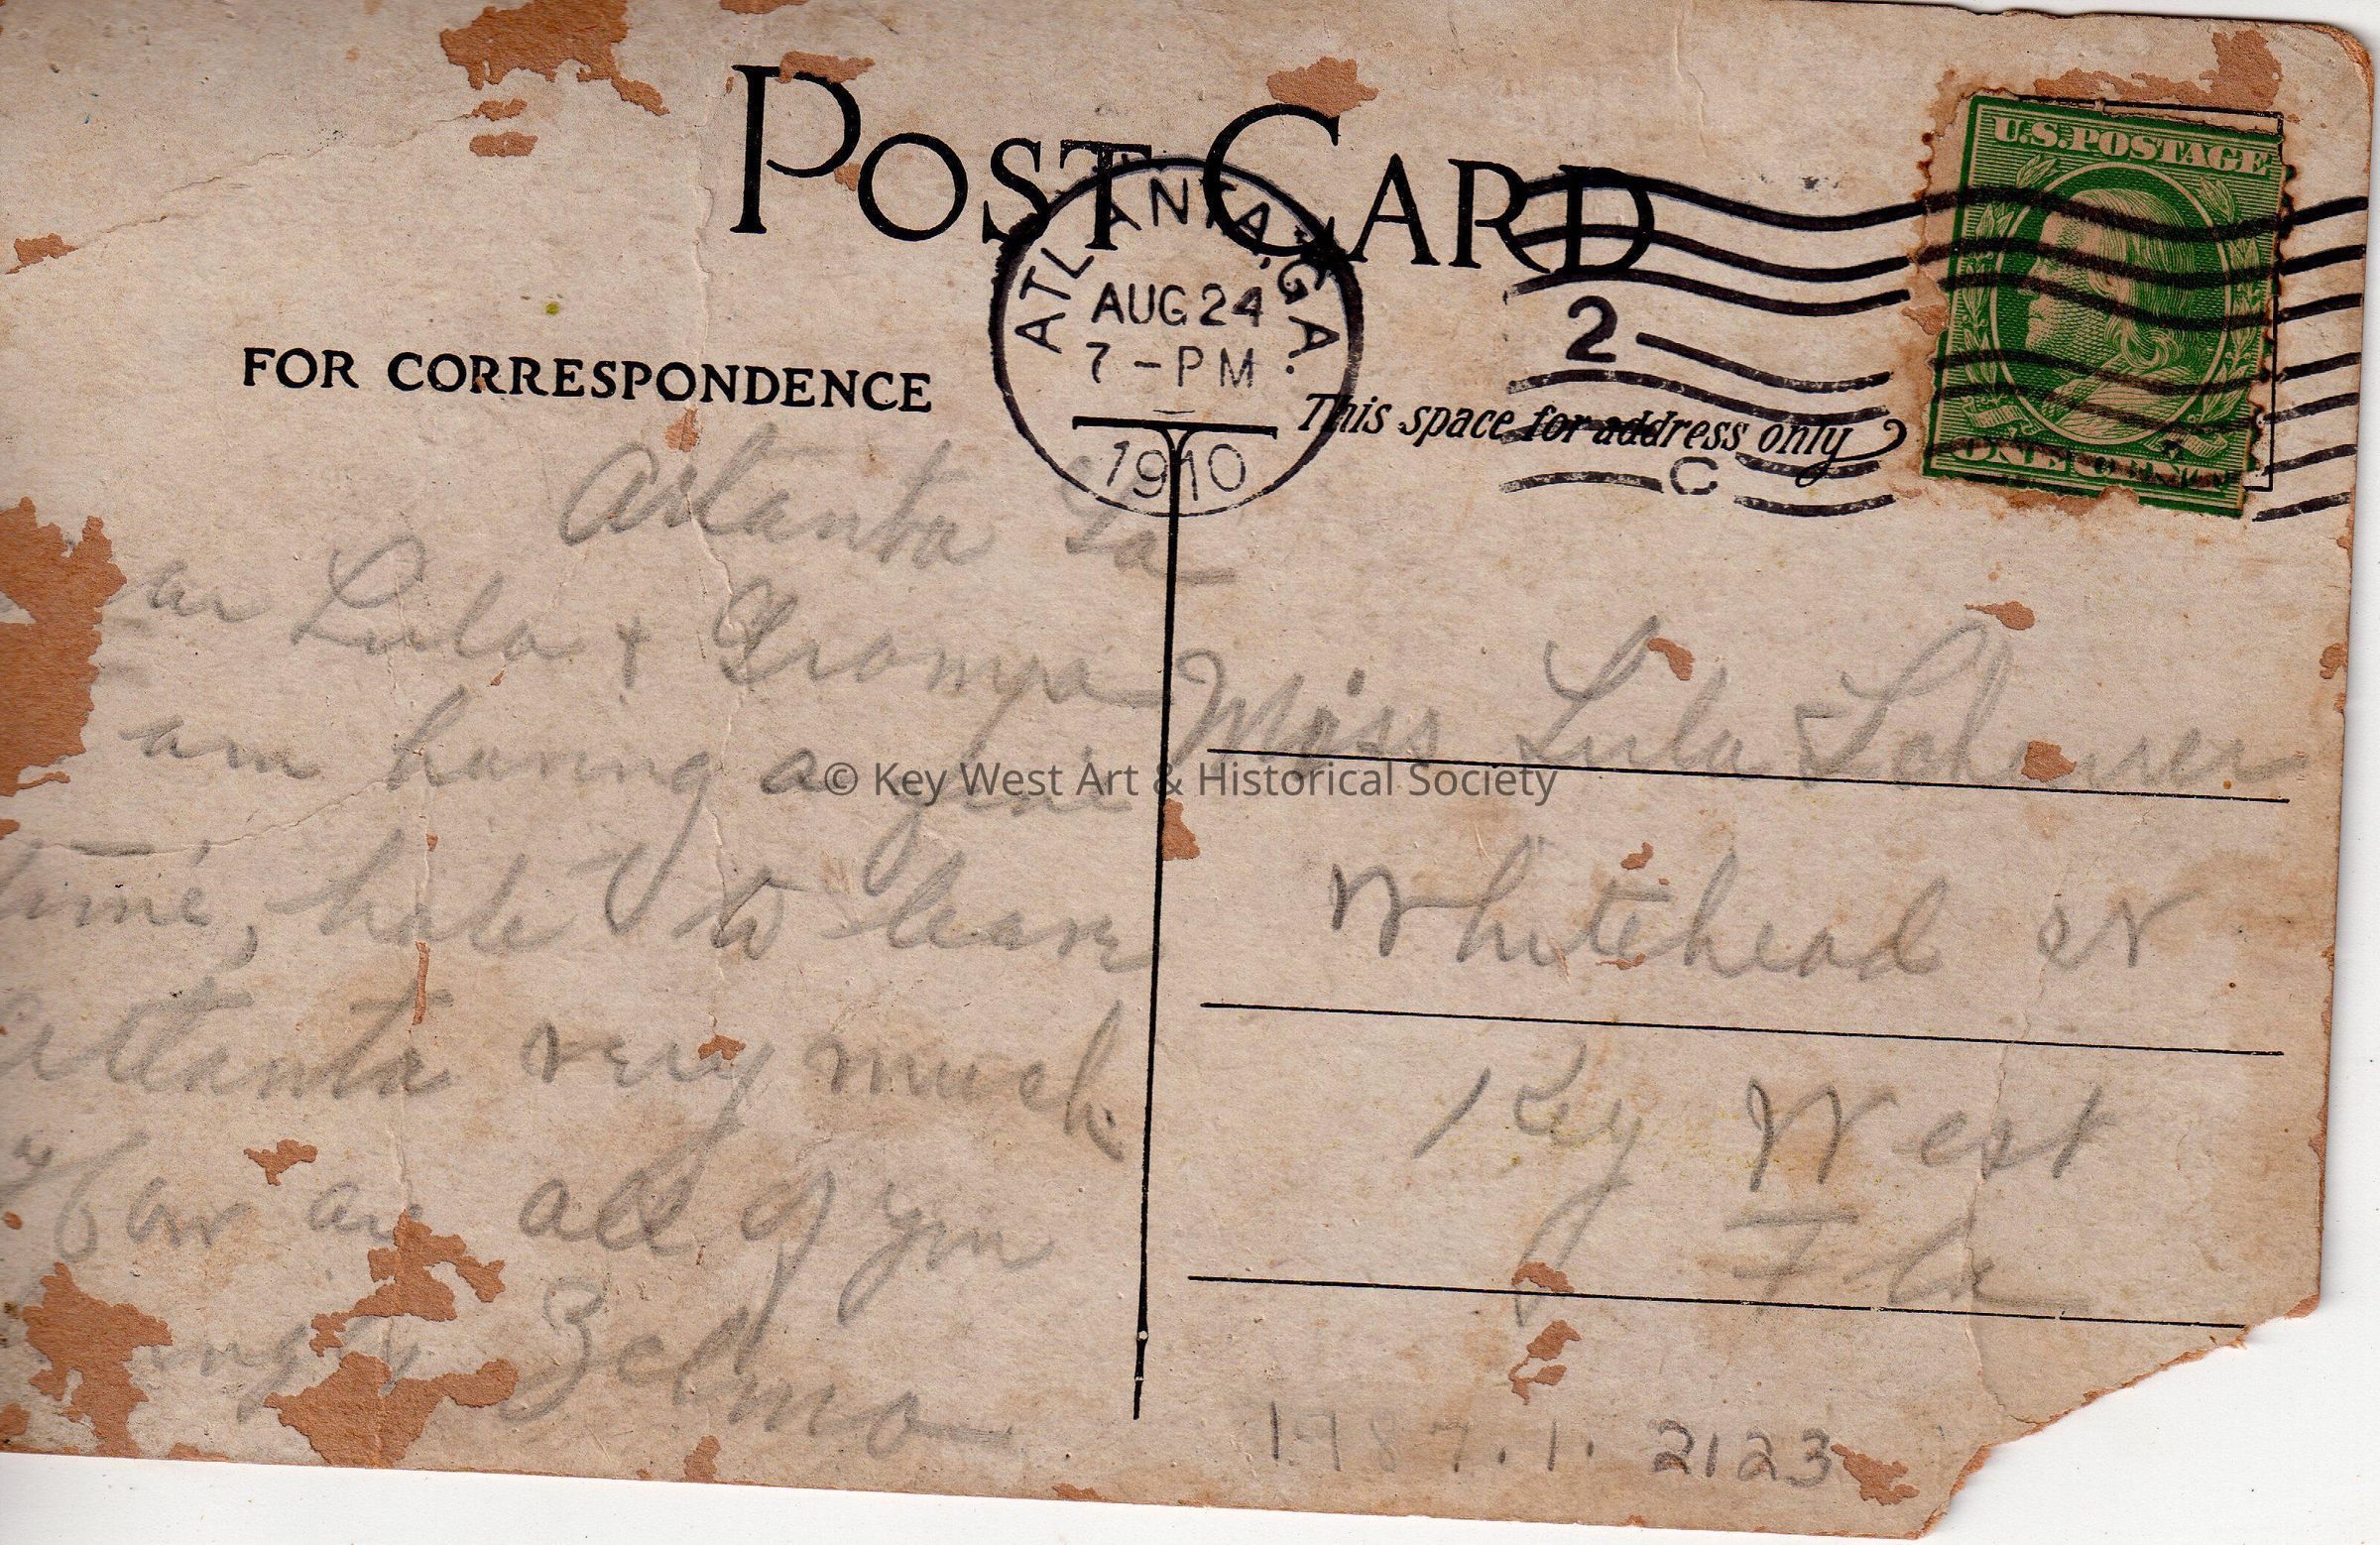 POST CARD
ATLANTA, GA.
AUG 24
7-PM
1910
2
C
U.S. POSTAGE
ONE CENT
FOR CORRESPONDENCE
This space for address only
Atlanta Ga
ar Lula +
am having a fine
time, hate to leave
Atlanta very much.
How are all of you
Zelma
Miss Lula
Whitehead St
Key West
Fla
© Key West Art & Historical Society
1987.1.2123